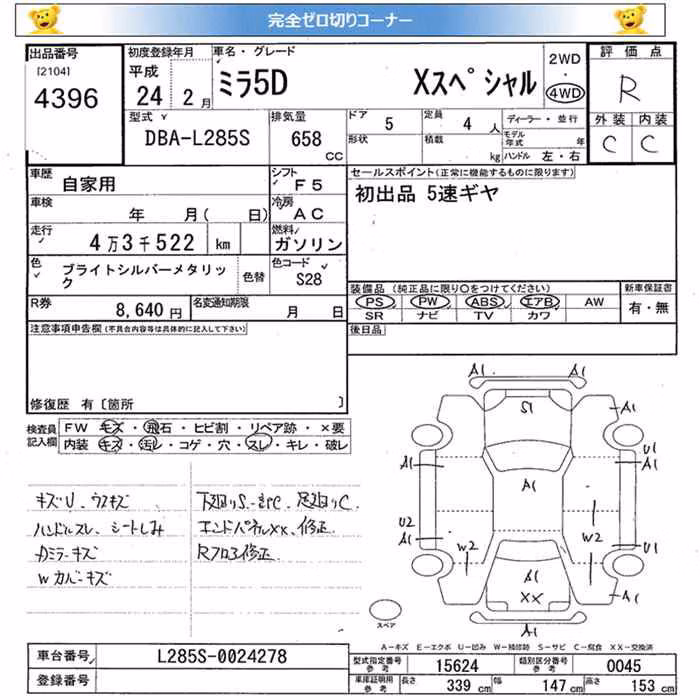 完全ゼロ切りコーナー
出品番号 [2104] 4396
初度登録年月 平成 24 2 月
車名・グレード ミラ5D Xスペシャル
2WD ・ 4WD
評価点 R
外装 内装
C C
型式 DBA-L285S
排気量 658 cc
ドア 5 定員 4 人
形状 積載 kg
ディーラー・並行
モデル年式 年
ハンドル 左・右
車歴 自家用
シフト F5
車検 年 月( 日)
冷房 AC
走行 4万3千522 km
燃料 ガソリン
色 ブライトシルバーメタリック 色替
色コード S28
R券 8,640 円
名変通知期限 月 日
セールスポイント(正常に機能するものに限ります)
初出品 5速ギヤ
装備品 (純正品に限り○をつけてください)
PS PW ABS エアB AW
SR ナビ TV カワ
新車保証書 有・無
後日品
注意事項申告欄(不具合内容等は具体的に記入して下さい)
修復歴 有〔箇所 〕
検査員記入欄
FW キズ・飛石・ヒビ割・リペア跡・×要
内装 キズ・汚レ・コゲ・穴・スレ・キレ・破レ
キズU、ウスキズ
ハンドルスレ、シートしみ
カミラーキズ
Wカバーキズ
下廻りS・錆C、足廻りC
エンドパネルXX、修正
Rフロア修正
A1 A1
S1
A1 A1
A1 A1 U1 A1
U2 A1 U1
W2 W2
S1
XX
A1
スペア
A-キズ E-エクボ U-凹み W-補修跡 S-サビ C-腐食 XX-交換済
車台番号 L285S-0024278
登録番号
型式指定番号参考 15624
類別区分番号参考 0045
車庫証明用参考 長さ 339 cm 幅 147 cm 高さ 153 cm